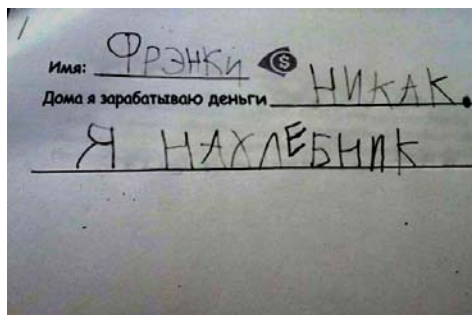 Имя: Фрэнки
Дома я зарабатываю деньги НИКАК.
Я НАХЛЕБНИК